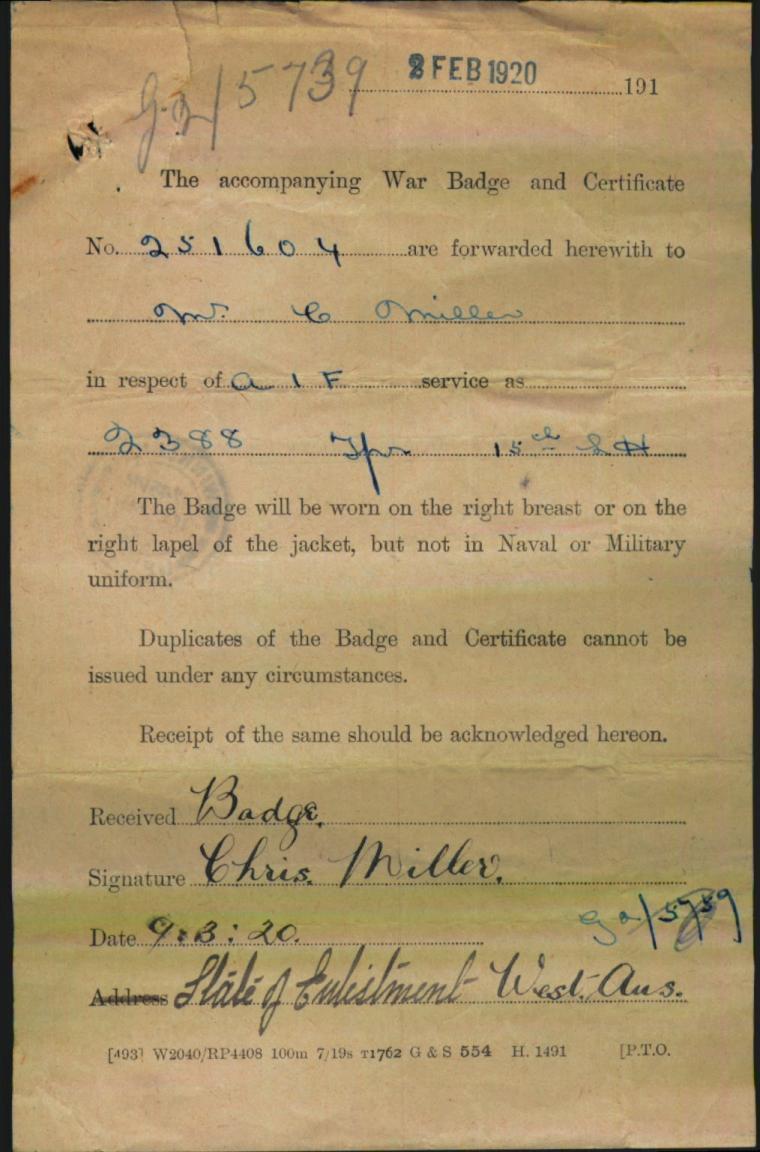 5739 2 FEB 1920 191
The accompanying War Badge and Certificate
No. 251604 are forwarded herewith to
Mr. C Miller
in respect of A I F service as
2388 Tpr 15th L H
The Badge will be worn on the right breast or on the
right lapel of the jacket, but not in Naval or Military
uniform.
Duplicates of the Badge and Certificate cannot be
issued under any circumstances.
Receipt of the same should be acknowledged hereon.
Received Badge.
Signature Chris. Miller.
Date 9:3:20.
Address State of Enlistment West. Aus.
[493] W2040/RP4408 100m 7/19s T1762 G & S 554 H. 1491 [P.T.O.